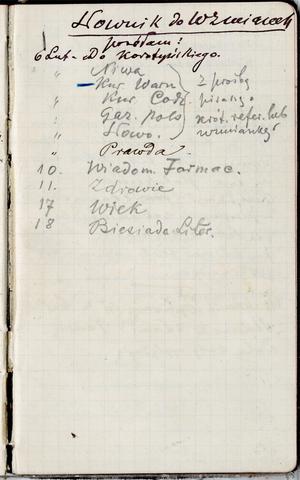 Słownik do Wzmianek
posłałam:
6 Lut. - Do Korotyńskiego.
" Niwa
" Kur. Warn } z prośbą
" Kur. Codz. pisaną o
" Gaz. Pols krót. refer. lub
" Słowo. wzmiankę
" Prawda.
10. Wiadom. Farmac.
11. Zdrowie
17 Wiek
18 Biesiada Liter.